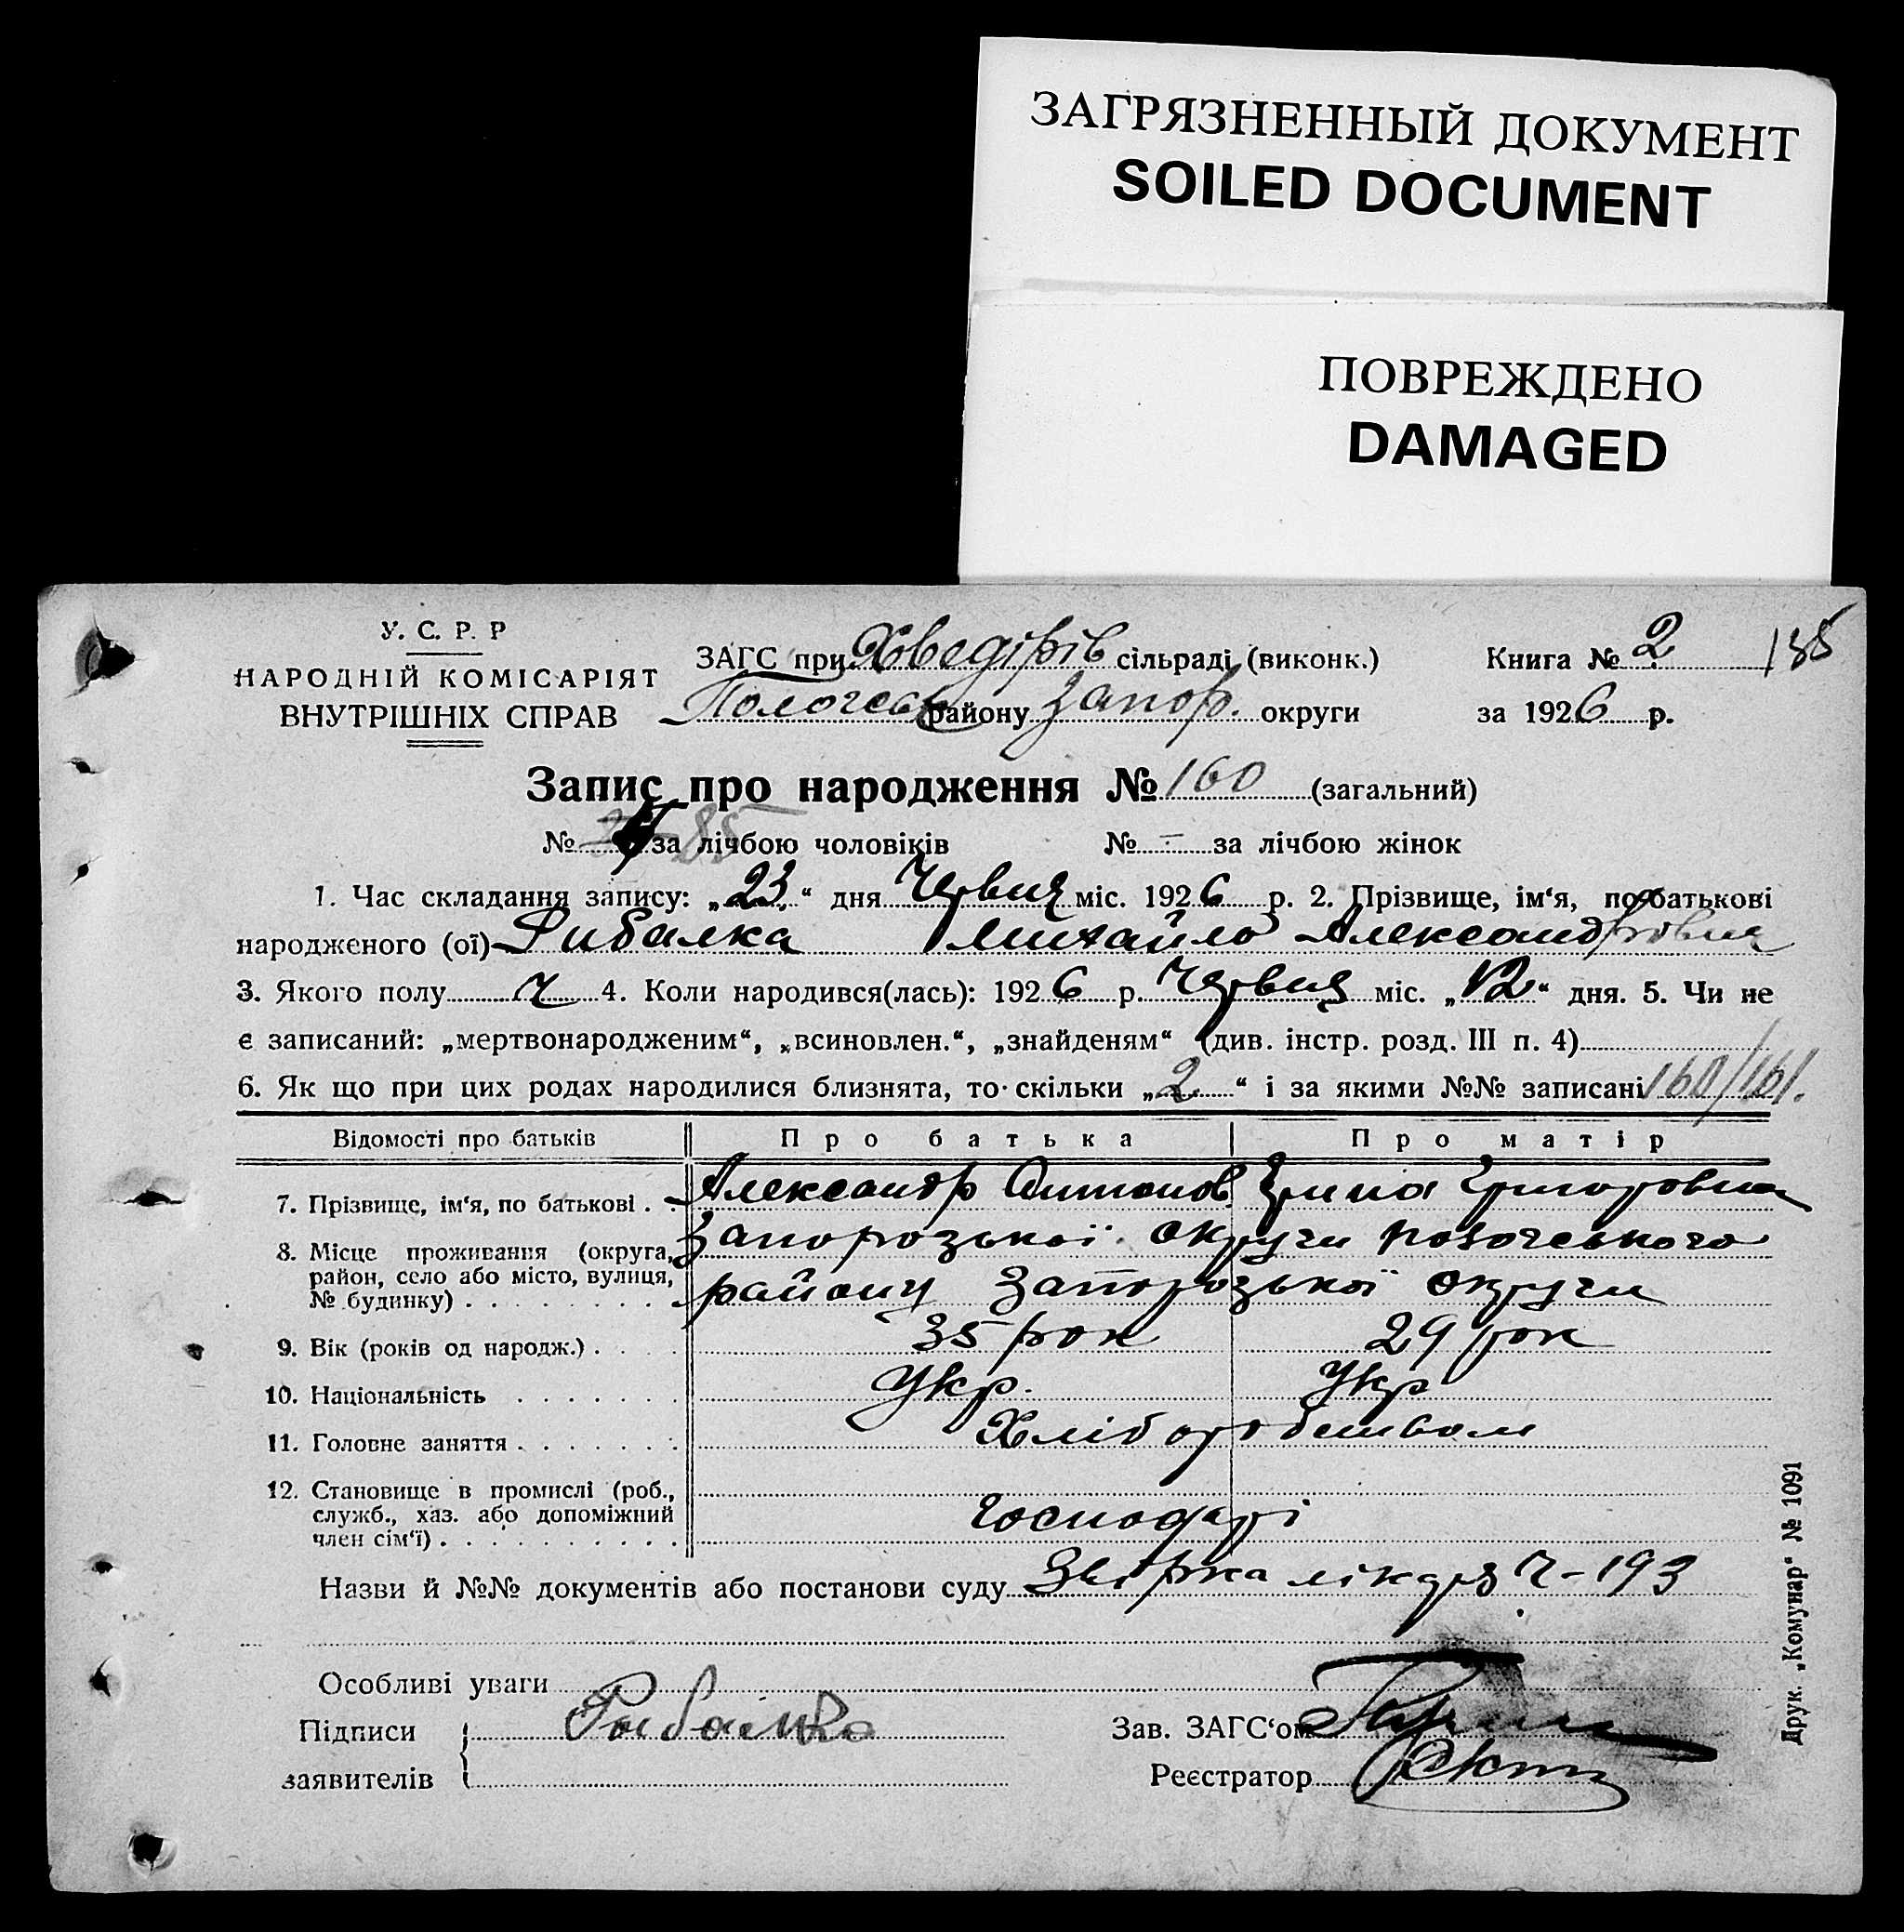 ЗАГРЯЗНЕННЫЙ ДОКУМЕНТ
SOILED DOCUMENT
ПОВРЕЖДЕНО
DAMAGED
У. С. Р. Р
НАРОДНІЙ КОМІСАРІЯТ
ВНУТРІШНІХ СПРАВ
ЗАГС при Хведірів сільраді (виконк.)
Пологськ району Запор. округи
Книга № 2 185
за 1926 р.
Запис про народження № 160 (загальний)
№ 85 за лічбою чоловіків № - за лічбою жінок
1. Час складання запису: „23“ дня Червця міс. 1926 р. 2. Прізвище, ім‘я, по батькові
народженого (ої) Рибалка Михайло Александрович
3. Якого полу ч 4. Коли народився(лась): 1926 р. Червця міс. „12“ дня. 5. Чи не
є записаний: „мертвонародженим“, „всиновлен.“, „знайденям“ (див. інстр. розд. III п. 4)
6. Як що при цих родах народилися близнята, то скільки „2“ і за якими №№ записані 160/161.
Відомості про батьків Про батька Про матір
7. Прізвище, ім‘я, по батькові . . Александр Антонов. Ірина Григоровна
8. Місце проживання (округа, Запорозької округи Пологського
район, село або місто, вулиця, району Запорозької округи
№ будинку) . . . . . . . .
9. Вік (років од народж.) . . . . 35 рок 29 рок
10. Національність . . . . . . . Укр. Укр
11. Головне заняття . . . . . . . Хліборобством
12. Становище в промислі (роб.,
служб., хаз. або допоміжний Господарі
член сім‘ї) . . . . . . . . . .
Назви й №№ документів або постанови суду лікаря Ч-193
Особливі уваги
Підписи Рибалка Зав. ЗАГС‘ом
заявителів Реєстратор
Друк. „Комунар“ № 1091